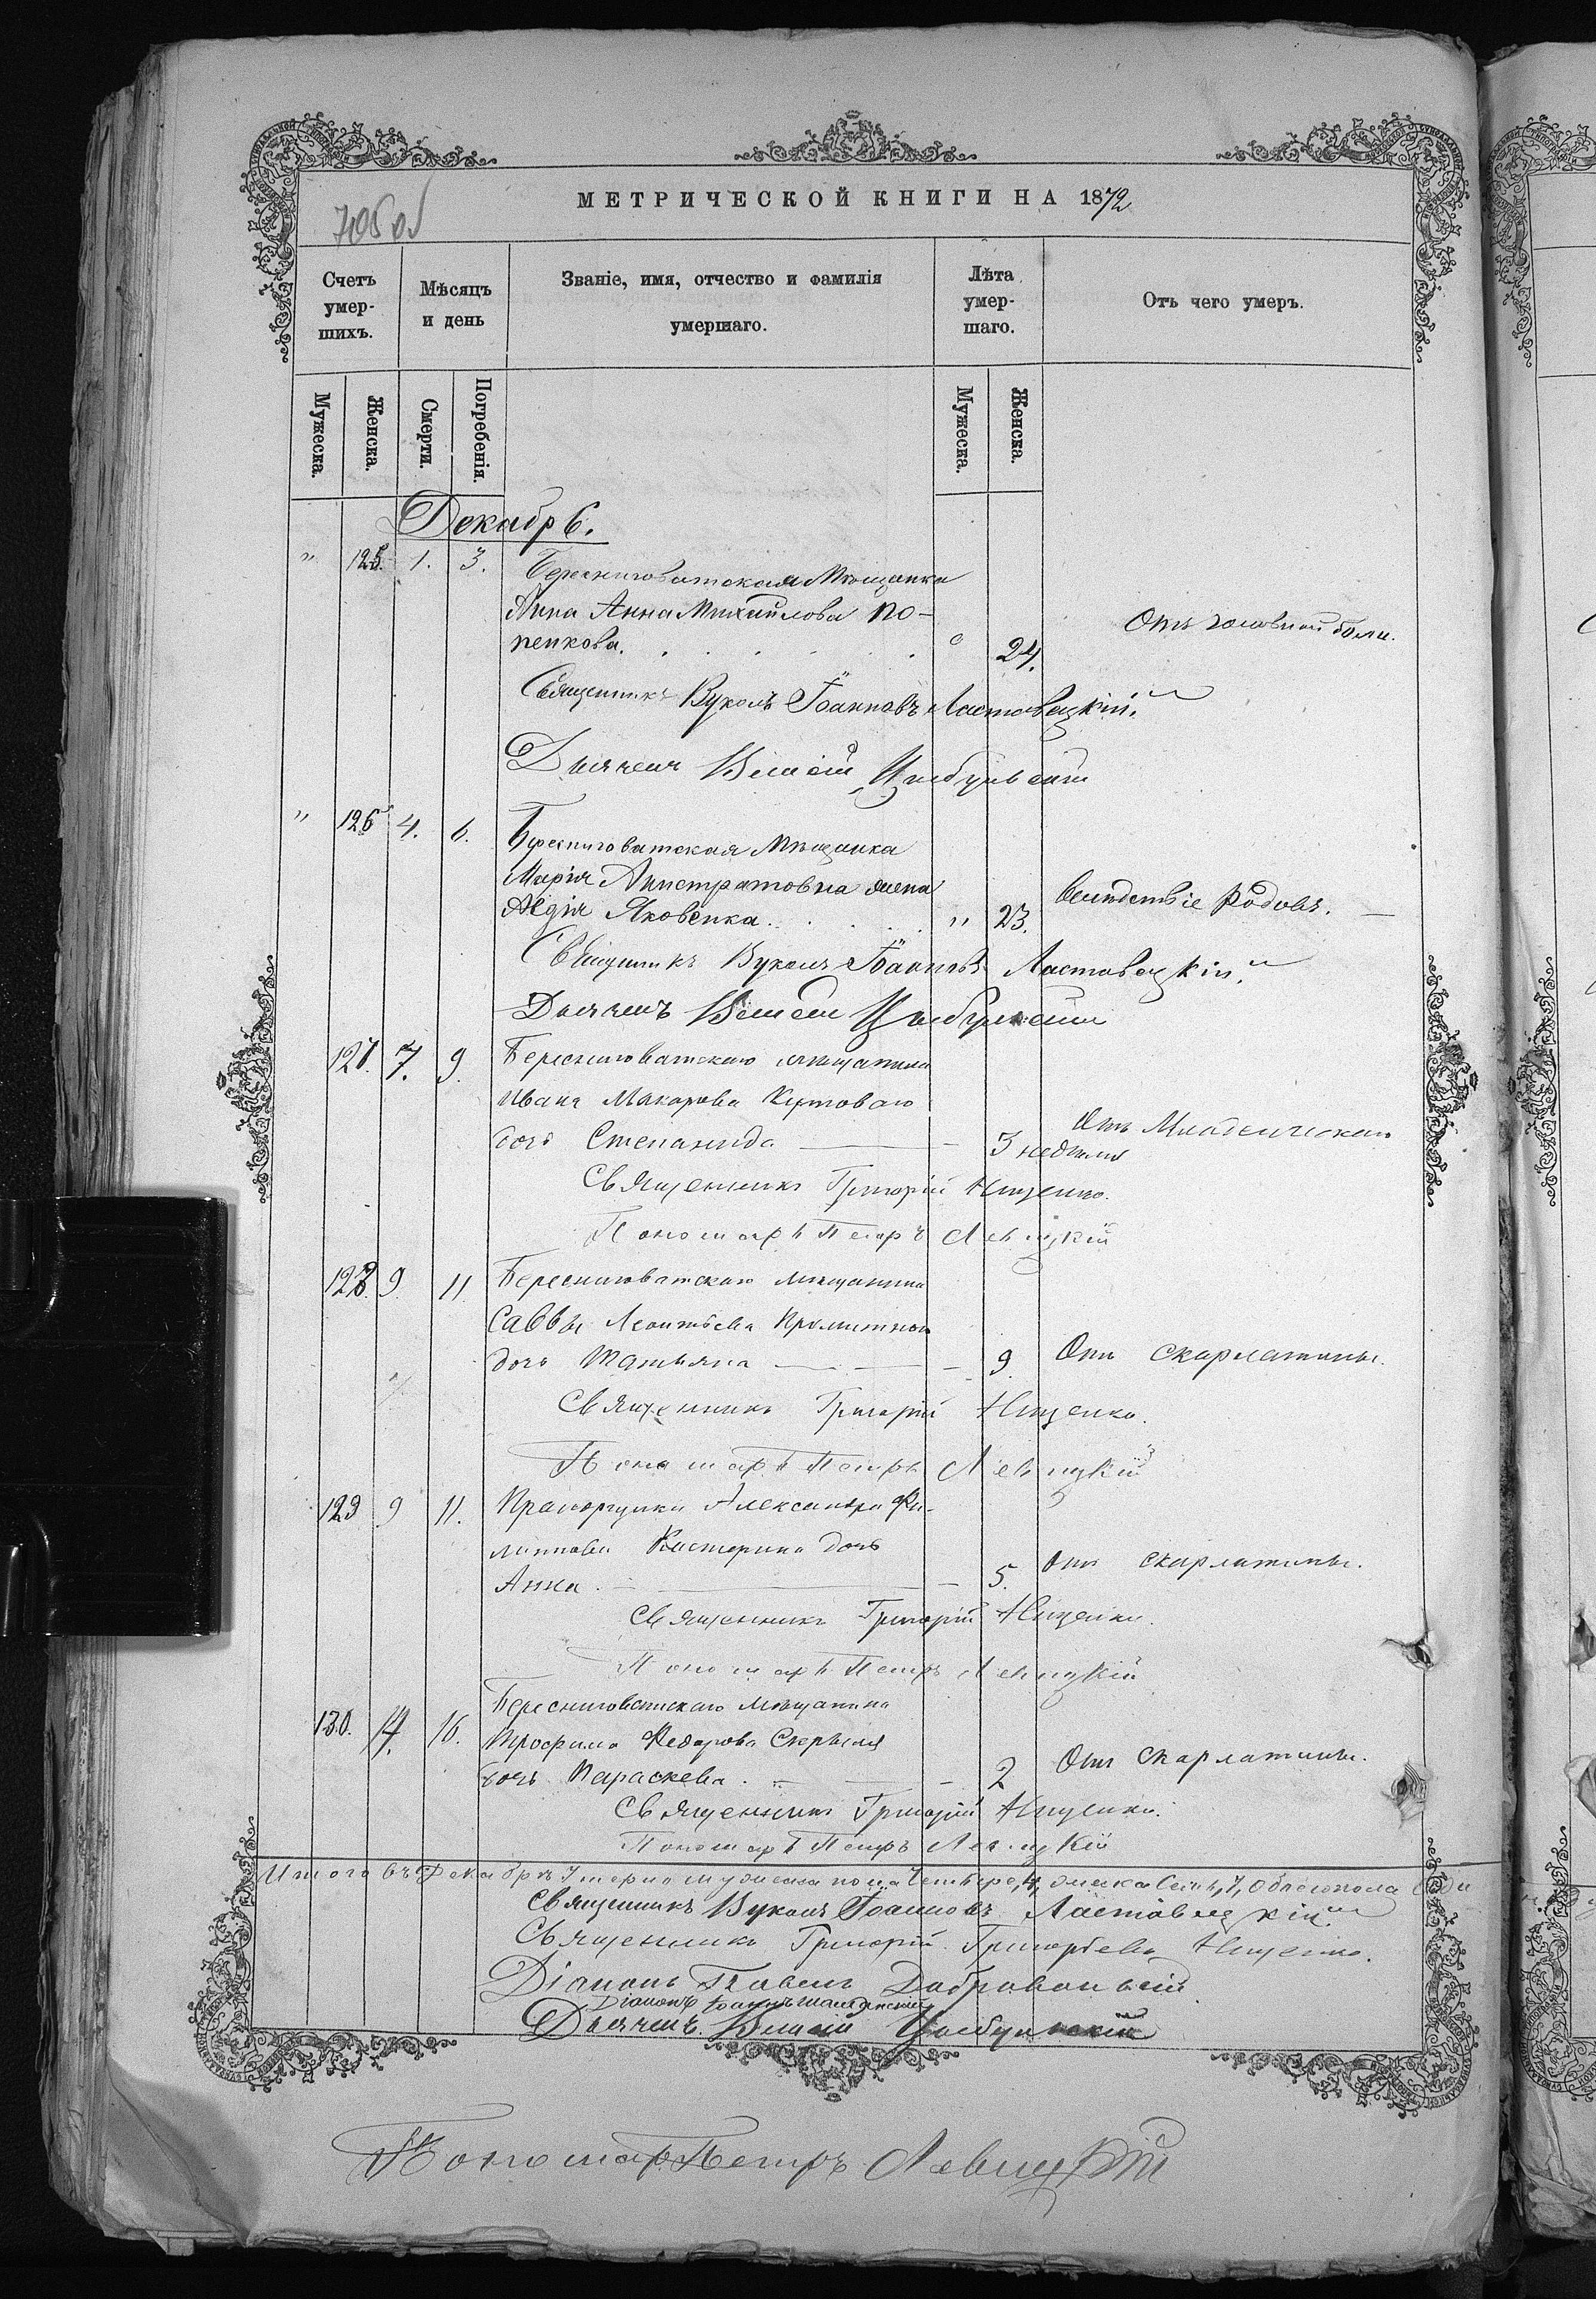 705 об
МЕТРИЧЕСКОЙ КНИГИ НА 1872
Счетъ умер-шихъ.
Мѣсяцъ и день
Званіе, имя, отчество и фамилія умершаго.
Лѣта умер-шаго.
Отъ чего умеръ.
Мужеска.
Женска.
Смерти.
Погребенія.
Мужеска.
Женска.
Декабрь.
" 125. 1. 3. Бересниговатская Мѣщанка
Анна Михайлова По-
пенкова. 24. Отъ головной боли.
Священникъ Вуколъ Іоанновъ Ластовецкій.
Дьячекъ
" 126 4. 6. Бересниговатская Мѣщанка
Марія Анистратовна жена
Авдія Яковенка. " 23. Вслѣдствіе родовъ.
Священникъ Вуколъ Іоанновъ Ластовецкій.
Дьячекъ
127. 7. 9. Бересниговатскаго мѣщанина
Ивана Макарова Кутоваго
дочь Степанида — 3 недѣли Отъ Младенческой
Священникъ Григорій Нищенко.
Пономарь Петръ Левицкій
128. 9. 11. Бересниговатскаго мѣщанина
Саввы Леонтьева
дочь Татьяна — 9. Отъ скарлатины.
Священникъ Григорій Нищенко.
Пономарь Петръ Левицкій
129 9 11. Прапорщика Александра Фи-
липпова дочь
Анна. — 5. Отъ скарлатины.
Священникъ Григорій Нищенко.
Пономарь Петръ Левицкій
130. 14. 16. Бересниговатскаго мѣщанина
Трофима Федорова
дочь Параскева. — 2 Отъ скарлатины.
Священникъ Григорій Нищенко.
Пономарь Петръ Левицкій
Итого въ Декабрѣ умерло мужеска пола четыре, 4, женска семь, 7, обоего пола
Священникъ Вуколъ Іоанновъ Ластовецкій.
Священникъ Григорій Григорьевъ Нищенко.
Діаконъ Павелъ Добровольскій
Діаконъ Іоаннъ
Дьячекъ
Пономарь Петръ Левицкій